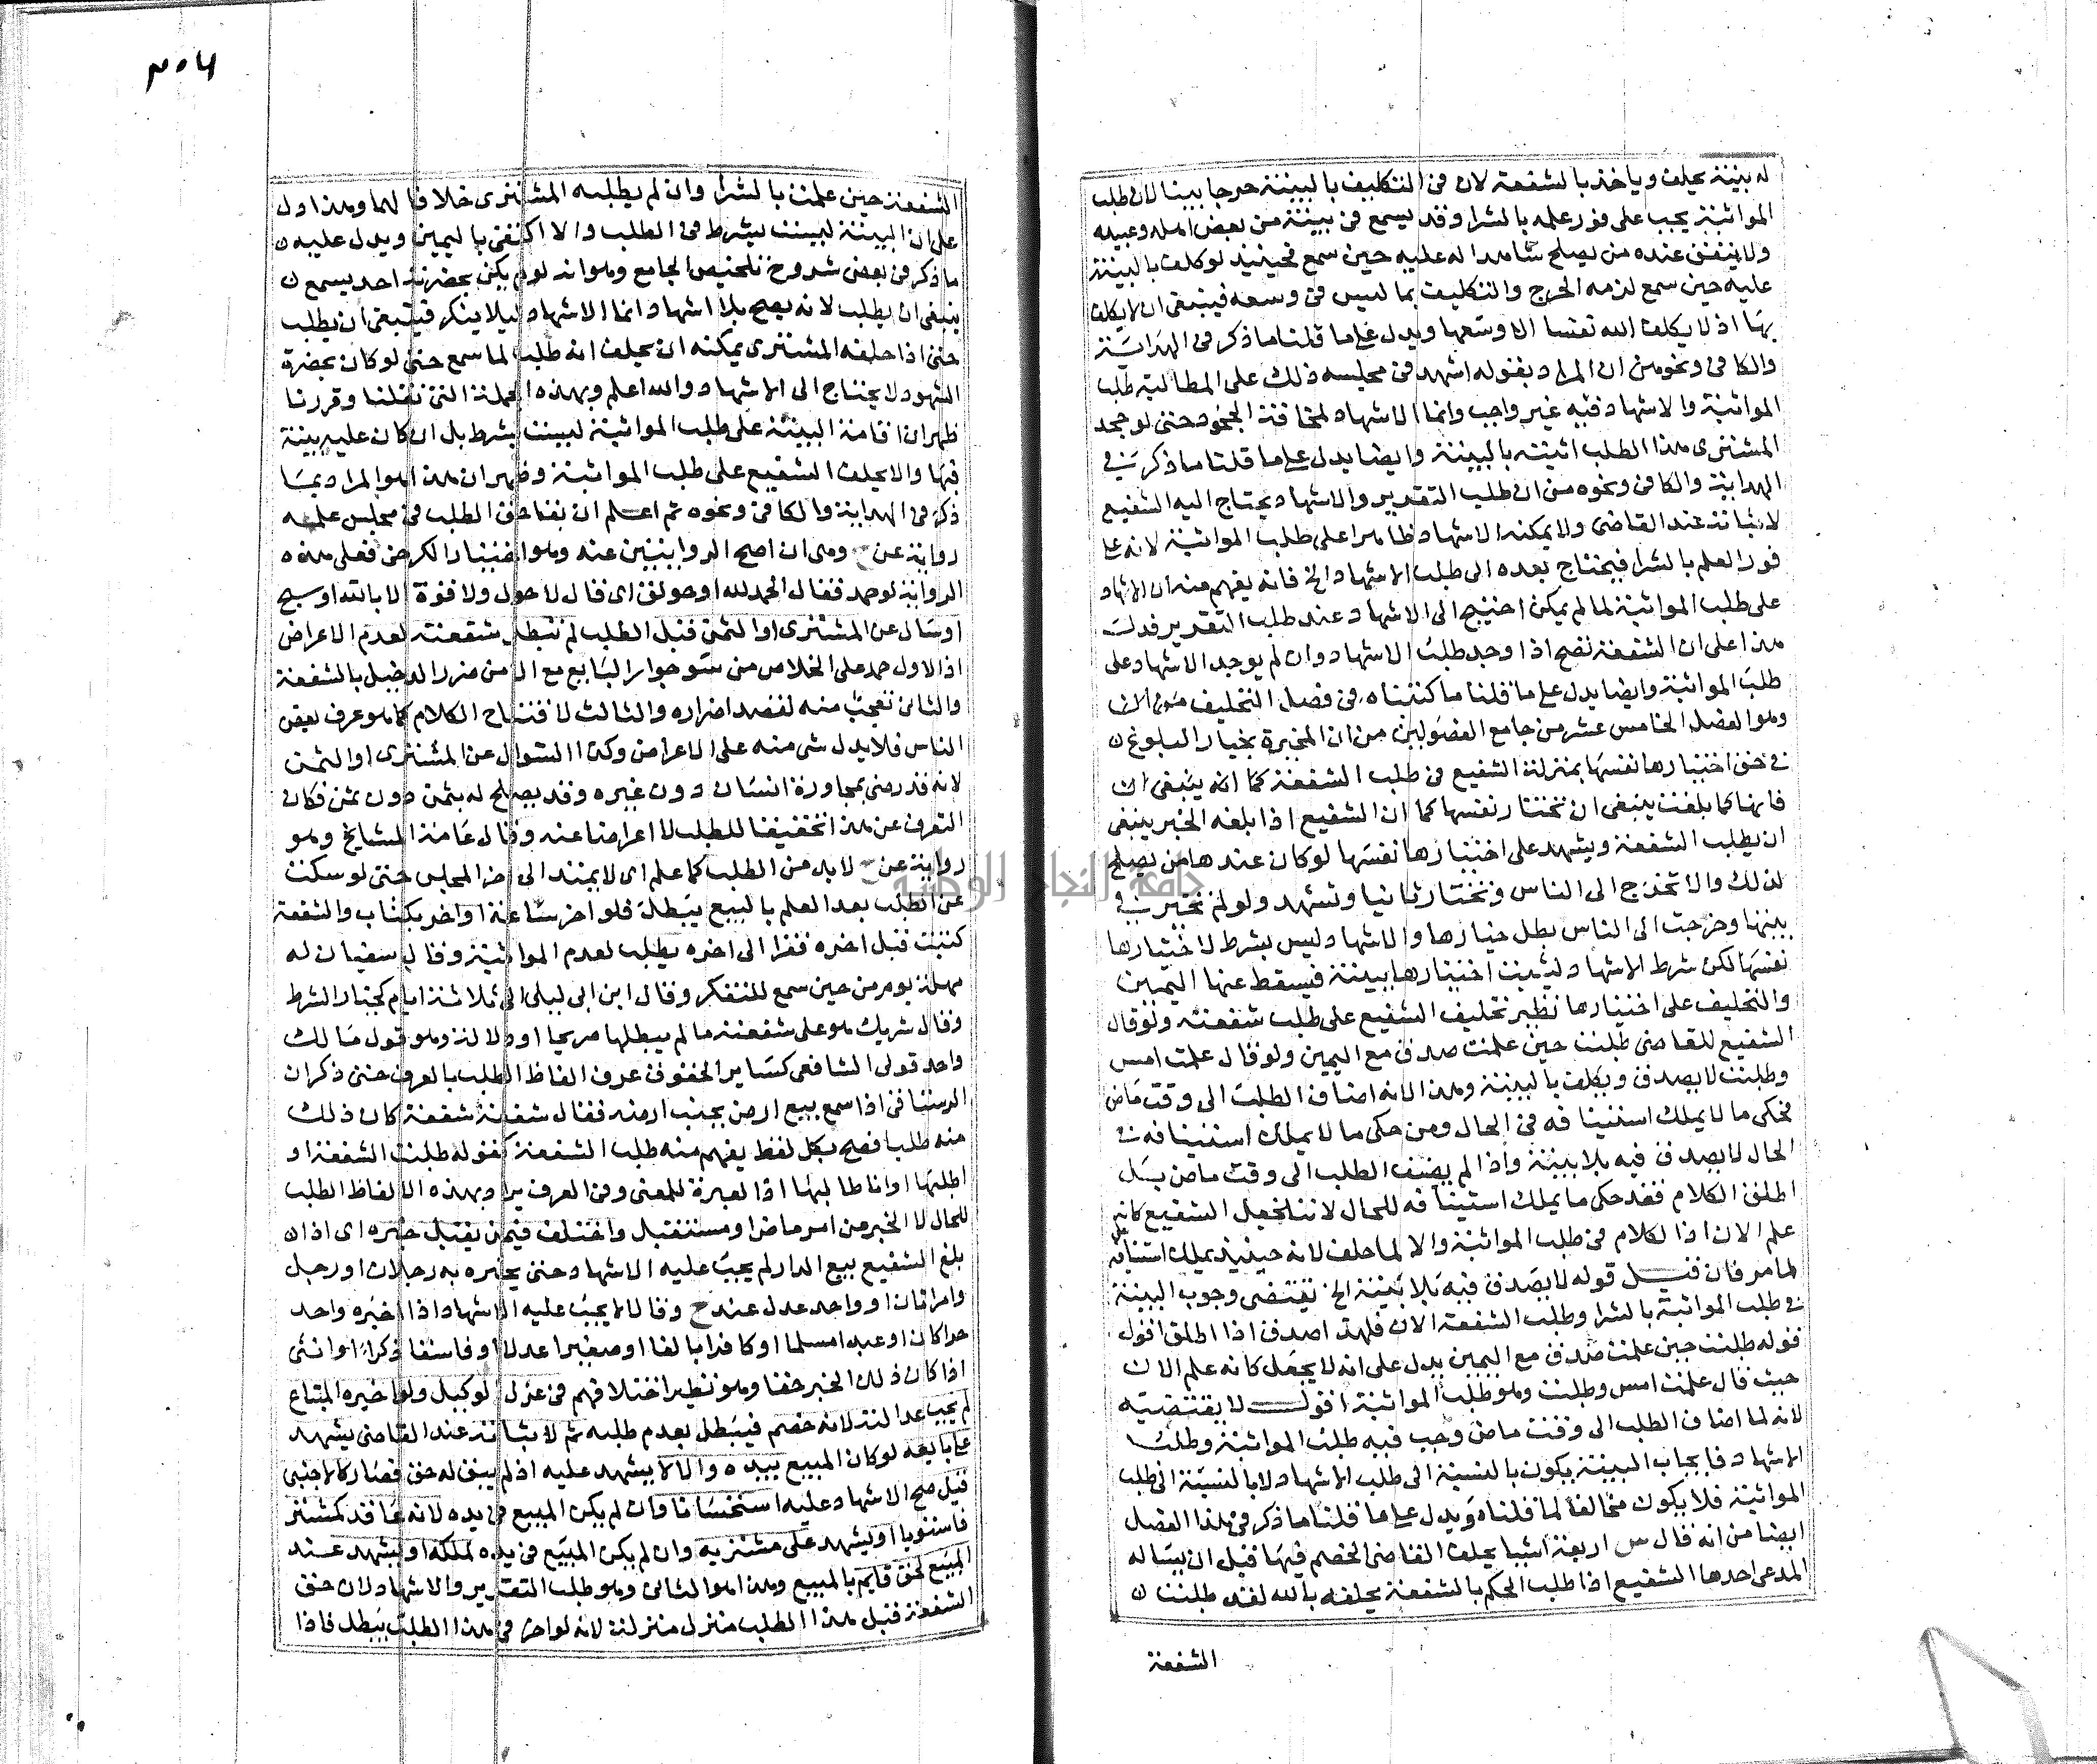 له بينة يحلف وياخذ بالشفعة لان في التكليف بالبينة حرجا بينا لان طلب
المواثبة يجب على فور علمه بالشرا وقد يسمع في بيته من بعض اهله وعبيده
ولا يتفق عنده من يصلح شاهدا له عليه حين سمع فحينيذ لو كلف بالبينة
عليه حين سمع لزمه الحرج والتكليف بما ليس في وسعه فينبغي ان لا يكلف
بها اذ لا يكلف الله نفسا الا وسعها ويدل على ما قلنا ما ذكر في الهداية
والكافي ونحوه من ان المراد بقوله اشهد في مجلسه ذلك على المطالبة طلب
المواثبة والاشهاد فيه غير واجب وانما الاشهاد لمخافة الجحود حتى لو جحد
المشتري هذا الطلب اثبته بالبينة وايضا يدل على ما قلنا ما ذكر في
الهداية والكافي ونحوه من ان طلب التقدير والاشهاد يحتاج اليه الشفيع
لاثباته عند القاضي ولا يمكنه الاشهاد ظاهرا على طلب المواثبة لانه على
فور العلم بالشرا فيحتاج بعده الى طلب الاشهاد الخ فانه يفهم منه ان الاشهاد
على طلب المواثبة لما لم يمكن احتيج الى الاشهاد عند طلب التقدير فدلت
هذا على ان الشفعة تصح اذا وجد طلب الاشهاد وان لم يوجد الاشهاد على
طلب المواثبة وايضا يدل على ما قلنا ما كتبناه في فصل التحليف
وهو الفصل الخامس عشر من جامع الفصولين من ان المخيرة بخيار البلوغ
في حق اختيارها نفسها بمنزلة الشفيع في طلب الشفعة كما انه ينبغي
فانها كما بلغت ينبغي ان تختار نفسها كما ان الشفيع اذا بلغه الخبر ينبغي
ان يطلب الشفعة ويشهد على اختيارها نفسها لو كان عندها من يصلح
لذلك والا تخرج الى الناس وتختار ثانيا وتشهد ولو لم تختر في
بيتها وخرجت الى الناس بطل خيارها والاشهاد ليس بشرط لاختيارها
نفسها لكن شرط الاشهاد ليثبت اختيارها ببينة فيسقط عنها اليمين
والتحليف على اختيارها نظير تحليف الشفيع على طلب شفعته ولو قال
الشفيع للقاضي طلبت حين علمت صدق مع اليمين ولو قال علمت امس
وطلبت لا يصدق ويكلف بالبينة وهذا لانه اضاف الطلب الى وقت ماض
فحكى ما لا يملك استينافه في الحال ومن حكى ما لا يملك استينافه في
الحال لا يصدق فيه بلا بينة واذا لم يضف الطلب الى وقت ماض بل
اطلق الكلام فقد حكى ما يملك استينافه للحال لاننا نجعل الشفيع كانه
علم الان اذا الكلام في طلب المواثبة والا لما حلف لانه حينيذ يملك استينافه
لما مر فان قيل قوله لا يصدق فيه بلا بينة الخ يقتضي وجوب البينة
في طلب المواثبة بالشرا وطلب الشفعة الان فلهذا صدق اذا اطلق اقول
قوله طلبت حين علمت صدق مع اليمين يدل على انه لا يجعل كانه علم الان
حيث قال علمت امس وطلبت وهو طلب المواثبة اقول لا يقتضيه
لانه لما اضاف الطلب الى وقت ماض وجب فيه طلب المواثبة وطلب
الاشهاد فايجاب البينة يكون بالنسبة الى طلب الاشهاد لا بالنسبة الى طلب
المواثبة فلا يكون مخالفا لما قلناه ويدل على ما قلنا ما ذكر في هذا الفصل
ايضا من انه قال س اربعة اشيا يحلف القاضي الخصم فيها قبل ان يساله
المدعي احدها الشفيع اذا طلب الحكم بالشفعة يحلفه بالله لقد طلبت
الشفعة
الشفعة حين علمت بالشرا وان لم يطلبه المشتري خلافا لهما وهذا دل
على ان البينة ليست بشرط في الطلب والا اكتفي باليمين ويدل عليه
ما ذكر في بعض شروح تلخيص الجامع وهو انه لو لم يكن بحضرته احد يسمع
ينبغي ان يطلب لانه يصح بلا اشهاد انما الاشهاد ليلا ينكر فينبغي ان يطلب
حتى اذا حلفه المشتري يمكنه ان يحلف انه طلب لما سمع حتى لو كان بحضرة
الشهود لا يحتاج الى الاشهاد والله اعلم وبهذه الجملة التي نقلنا وقررنا
ظهر ان اقامة البينة على طلب المواثبة ليست بشرط بل ان كان عليه بينة
فبها والا يحلف الشفيع على طلب المواثبة وظهر ان هذا هو المراد بما
ذكر في الهداية والكافي ونحوه ثم اعلم ان بقا حق الطلب في مجلس علمه
رواية عن وهي ان اصح الروايتين عنه وهو اختيار الكرخي فعلى هذه
الرواية لو حمد فقال الحمد لله او حولق اي قال لا حول ولا قوة الا بالله او سبح
او سال عن المشتري او الثمن قبل الطلب لم تبطل شفعته لعدم الاعراض
اذ الاول حمد على الخلاص من سو جوار البايع مع الامن من ضرر الدخيل بالشفعة
والثاني تعجب منه لقصد اضراره والثالث لافتتاح الكلام كما هو عرف بعض
الناس فلا يدل شي منه على الاعراض وكذا السوال عن المشتري او الثمن
لانه قد رضي بمجاورة انسان دون غيره وقد يصلح له بثمن دون ثمن فكان
التعرف عن هذا تحقيقا للطلب لا اعراضا عنه وقال عامة المشايخ وهو
رواية عن لا بد من الطلب كما علم اي لا يمتد الى اخر المجلس حتى لو سكت
عن الطلب بعد العلم بالبيع يبطله فلو اخر ساعة او اخر بكتاب والشفعة
كتبت قبل اخره فقرا الى اخره يطلب لعدم المواثبة وقال سفيان له
مهلة يوم من حين سمع للتفكر وقال ابن ابي ليلى الى ثلاثة ايام كخيار الشرط
وقال شريك هو على شفعته ما لم يبطلها صريحا او دلالة وهو قول مالك
واحد قولي الشافعي كساير الحقوق عرف الفاظ الطلب بالعرف حتى ذكر ان
الرستاقي اذا سمع بيع ارض بجنب ارضه فقال شفعة شفعة كان ذلك
منه طلبا فصح بكل لفظ يفهم منه طلب الشفعة كقوله طلبت الشفعة او
اطلبها او انا طالبها اذ العبرة للمعنى وفي العرف يراد بهذه الالفاظ الطلب
للحال لا الخبر من امر ماض او مستقبل واختلف فيمن يقبل خبره اي اذا
بلغ الشفيع بيع الدار لم يجب عليه الاشهاد حتى يخبره به رجلان او رجل
وامراتان او واحد عدل عند ح وقالا لا يجب عليه الاشهاد اذا اخبره واحد
حرا كان او عبدا مسلما او كافرا بالغا او صغيرا عدلا او فاسقا ذكرا او انثى
اذا كان ذلك الخبر حقا وهو نظير اختلافهم في عزل الوكيل ولو اخبره المبتاع
لم يجب عدالته لانه خصم فيبطل بعدم طلبه ثم لاثباته عند القاضي يشهد
على بايعه لو كان المبيع بيده والا لا يشهد عليه اذ لم يبق له حق فصار كالاجنبي
قيل صح الاشهاد عليه استحسانا وان لم يكن المبيع في يده لانه عاقد كمشتر
فاستويا او يشهد على مشتريه وان لم يكن المبيع في يده لملكه او يشهد عند
المبيع لحق قايم بالمبيع وهذا هو الثاني وهو طلب التقدير والاشهاد لان حق
الشفعة قبل هذا الطلب متزلزل منزلة لانه لو اخر في هذا الطلب يبطل فاذا
جامعة النجاح الوطنية